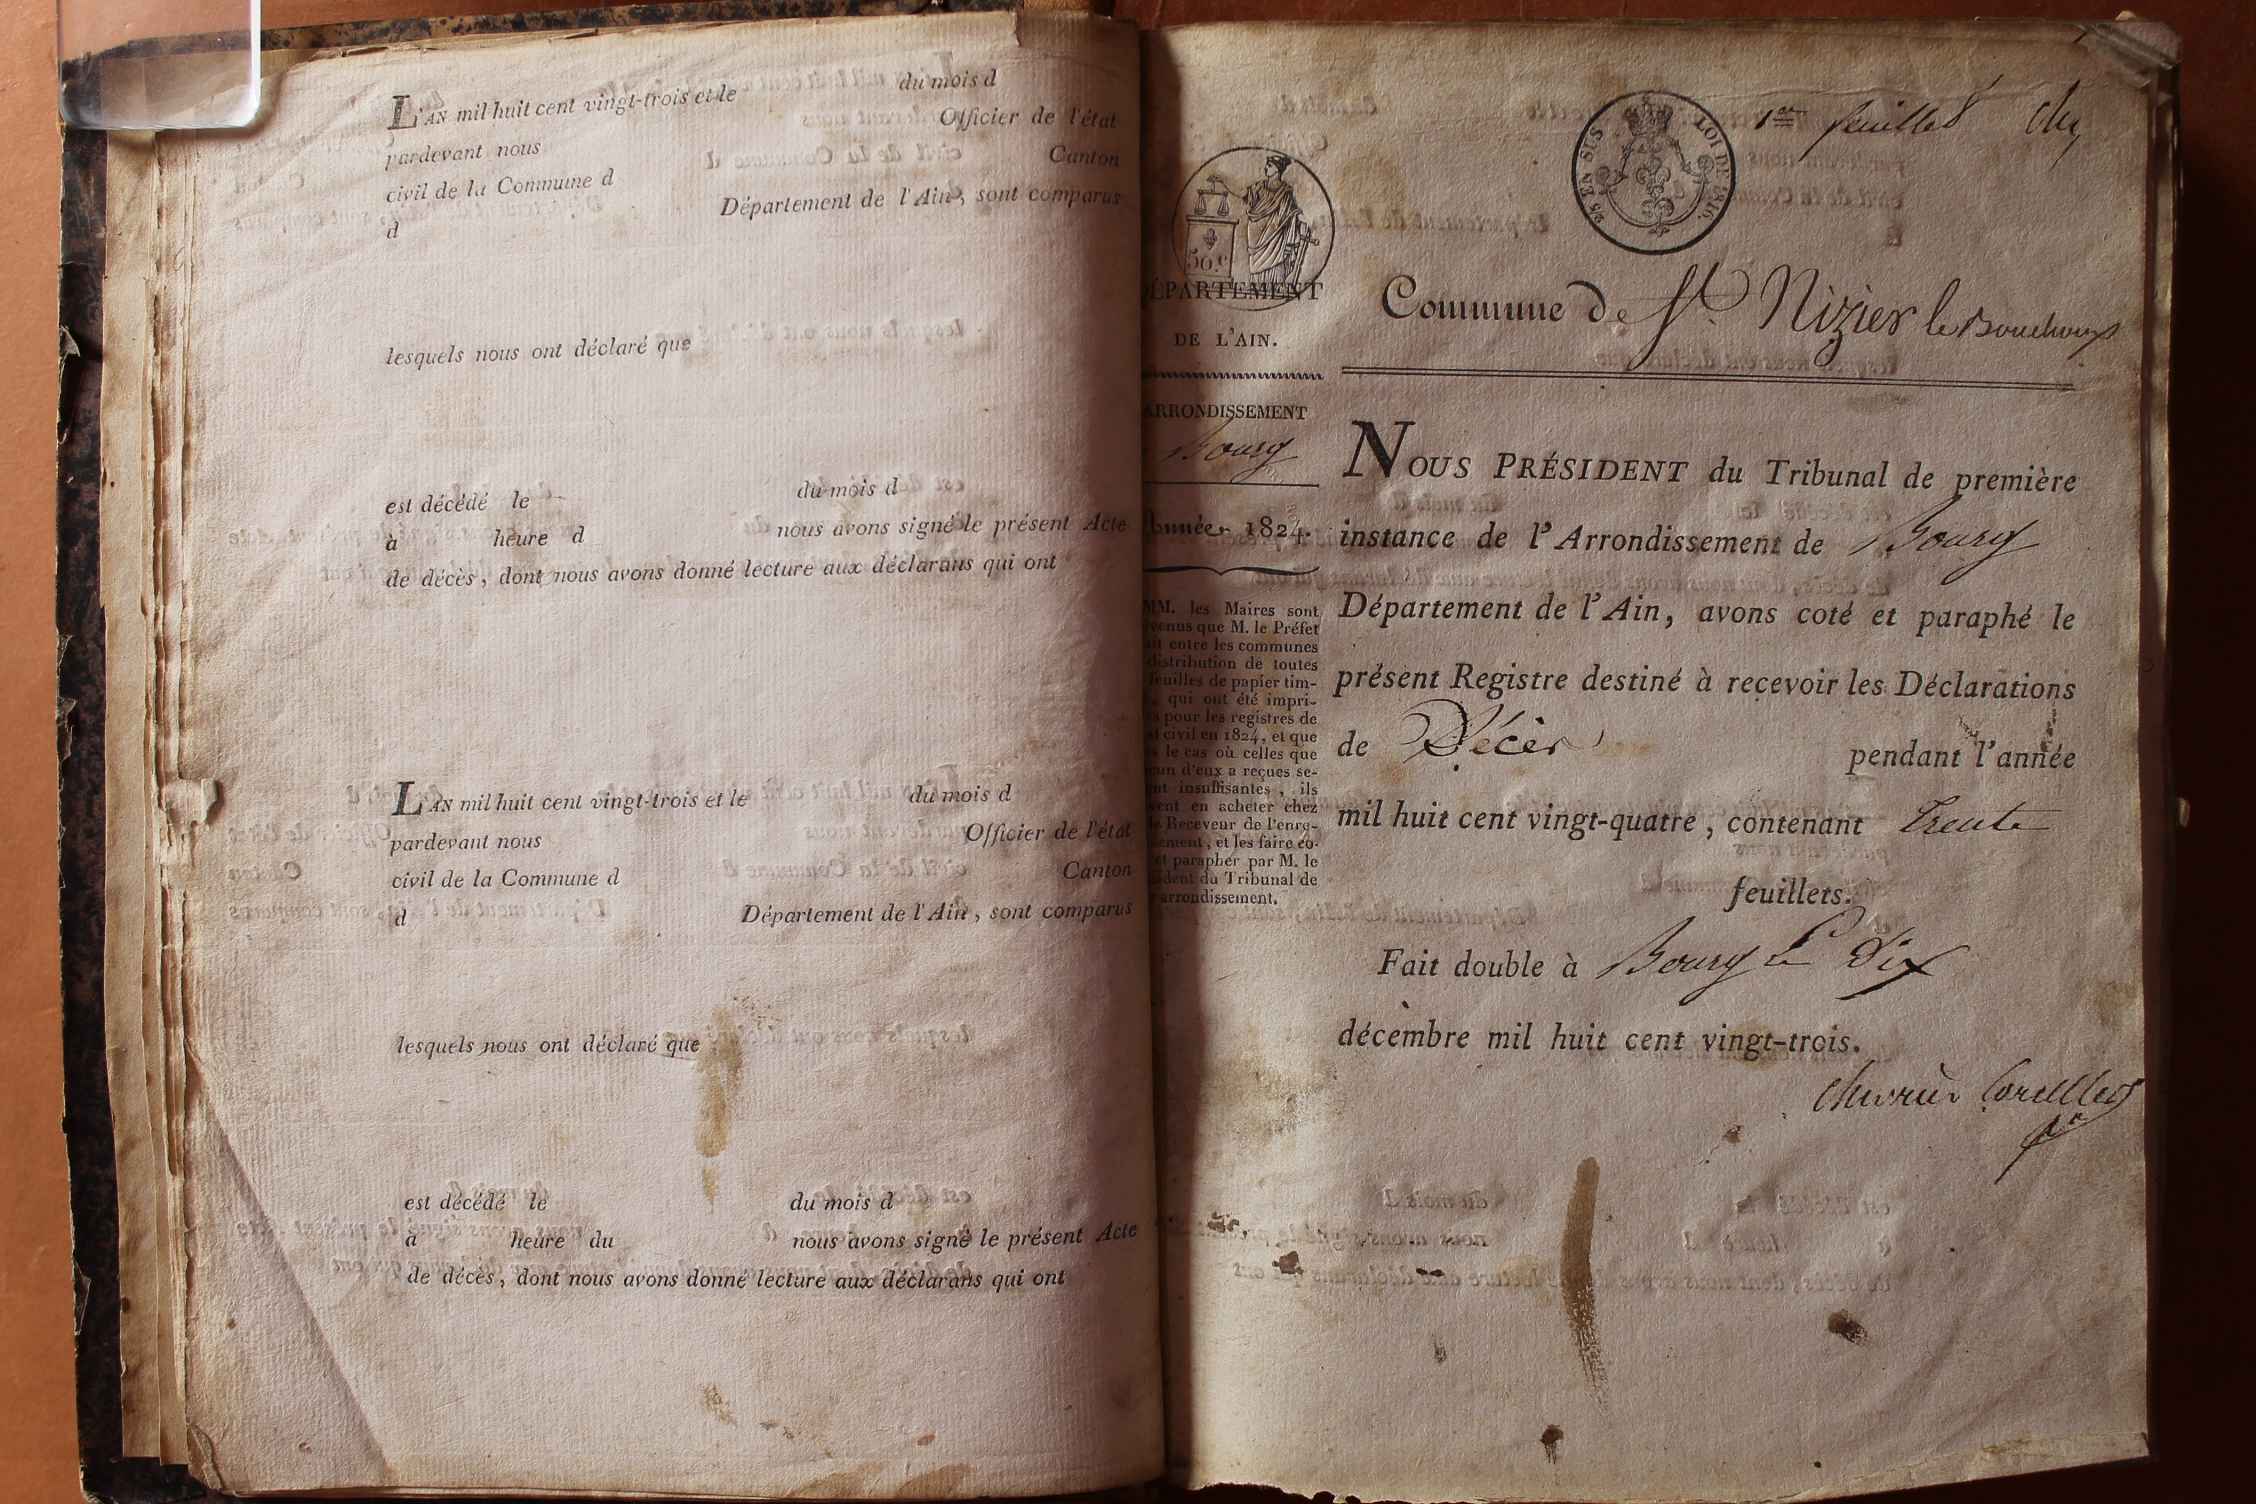 L'AN mil huit cent vingt-trois et le du mois d
pardevant nous Officier de l'état
civil de la Commune d Canton
d Département de l'Ain, sont comparus
lesquels nous ont déclaré que
est décédé le du mois d
à heure d nous avons signé le présent Acte
de décès, dont nous avons donné lecture aux déclarans qui ont
L'AN mil huit cent vingt-trois et le du mois d
pardevant nous Officier de l'état
civil de la Commune d Canton
d Département de l'Ain, sont comparus
lesquels nous ont déclaré que
est décédé le du mois d
à heure du nous avons signé le présent Acte
de décès, dont nous avons donné lecture aux déclarans qui ont
1er feuillet
25 EN SUS LOI DE 1816.
50.c
DÉPARTEMENT
DE L'AIN.
ARRONDISSEMENT
Bourg
Année 1824.
MM. les Maires sont
que M. le Préfet
entre les communes
distribution de toutes
feuilles de papier tim-
qui ont été impri-
pour les registres de
civil en 1824, et que
le cas où celles que
d'eux a reçues se-
insuffisantes, ils
en acheter chez
Receveur de l'enre-
et les faire co-
et parapher par M. le
du Tribunal de
arrondissement.
Commune de St. Nizier le Bouchoux
NOUS PRÉSIDENT du Tribunal de première
instance de l'Arrondissement de Bourg
Département de l'Ain, avons coté et paraphé le
présent Registre destiné à recevoir les Déclarations
de Décès pendant l'année
mil huit cent vingt-quatre, contenant trente
feuillets.
Fait double à Bourg le dix
décembre mil huit cent vingt-trois.